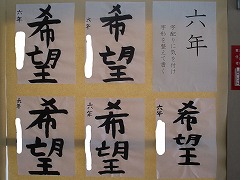 六年
字配りに気を付け
字形を整えて書く
六年
希望
六年
希望
六年
希望
六年
希望
六年
希望